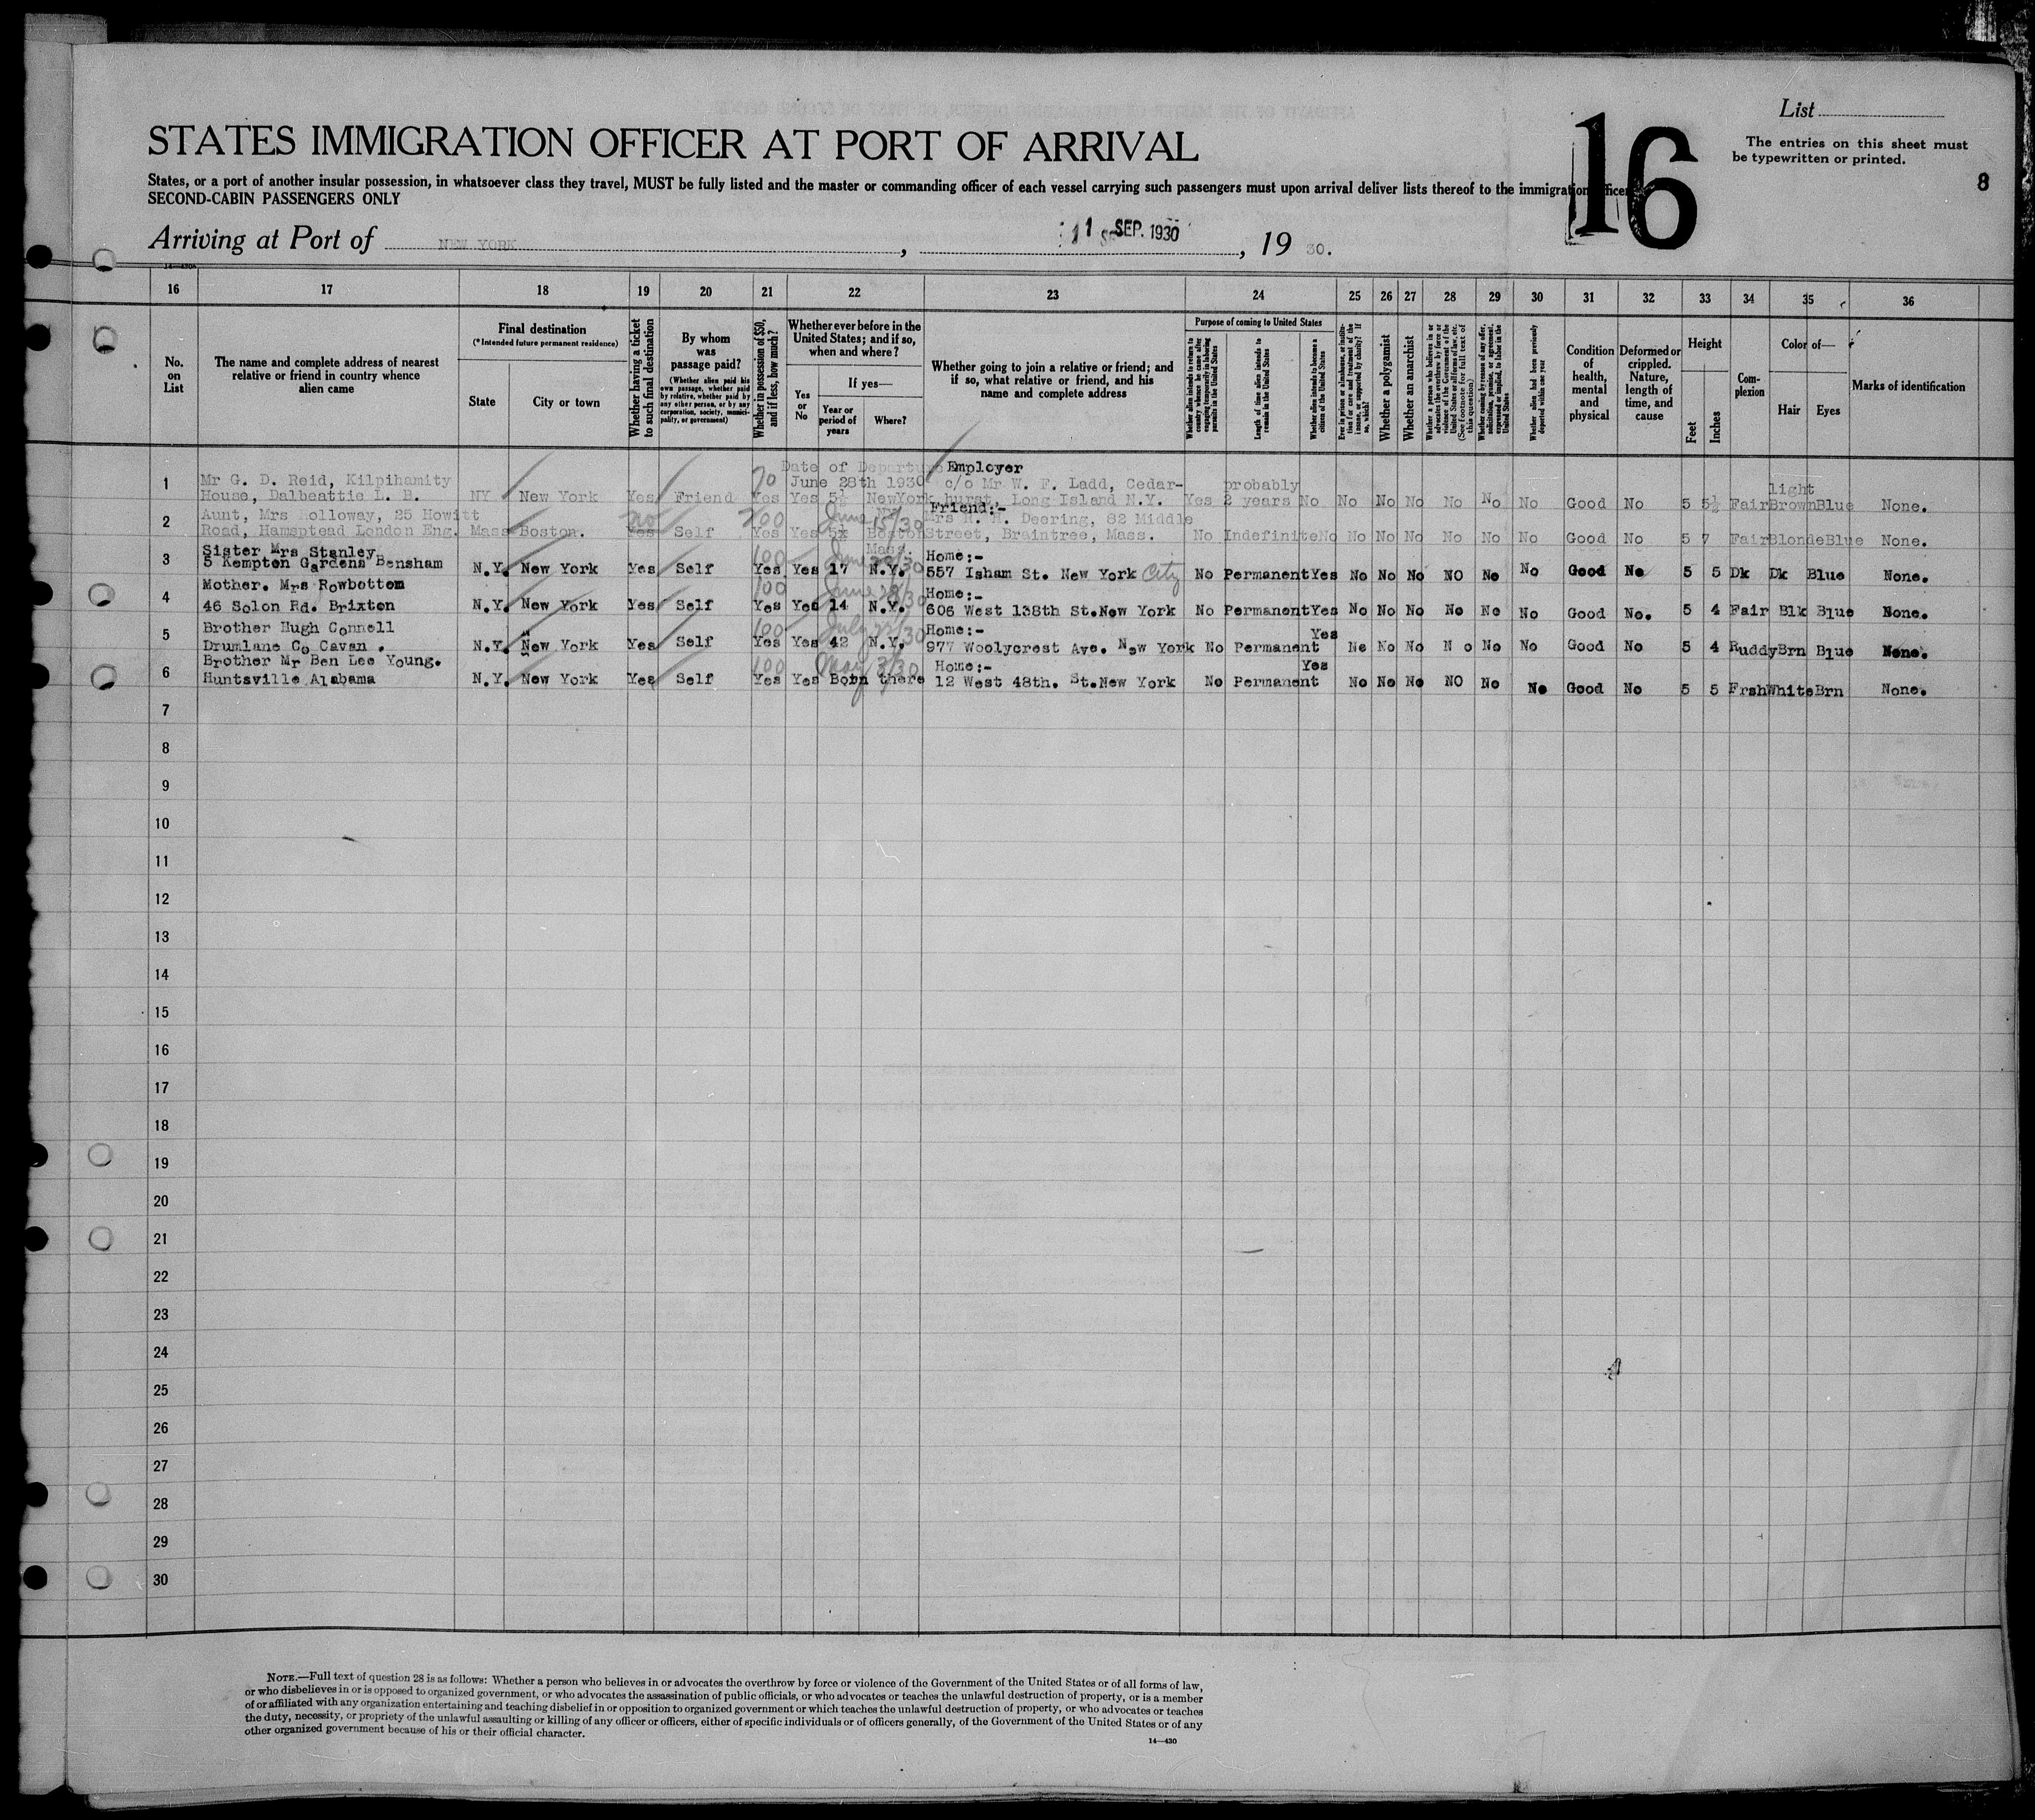 List
The entries on this sheet must
be typewritten or printed.
16
8
STATES IMMIGRATION OFFICER AT PORT OF ARRIVAL
States, or a port of another insular possession, in whatsoever class they travel, MUST be fully listed and the master or commanding officer of each vessel carrying such passengers must upon arrival deliver lists thereof to the immigration officer
SECOND-CABIN PASSENGERS ONLY
Arriving at Port of NEW YORK, 11 SEP. 1930, 19 30.
16 17 18 19 20 21 22 23 24 25 26 27 28 29 30 31 32 33 34 35 36
No. on List
The name and complete address of nearest relative or friend in country whence alien came
Final destination
(*Intended future permanent residence)
State
City or town
Whether having a ticket to such final destination
By whom was passage paid?
(Whether alien paid his own passage, whether paid by relative, whether paid by any other person, or by any corporation, society, municipality, or government)
Whether in possession of $50, and if less, how much?
Whether ever before in the United States; and if so, when and where?
Yes or No
If yes—
Year or period of years
Where?
Whether going to join a relative or friend; and if so, what relative or friend, and his name and complete address
Purpose of coming to United States
Whether alien intends to return to country whence he came after engaging temporarily in laboring pursuits in the United States
Length of time alien intends to remain in the United States
Whether alien intends to become a citizen of the United States
Ever in prison or almshouse, or institution for care and treatment of the insane, or supported by charity? If so, which?
Whether a polygamist
Whether an anarchist
Whether a person who believes in or advocates the overthrow by force or violence of the Government of the United States or all forms of law, etc. (See footnote for full text of this question)
Whether coming by reason of any offer, solicitation, promise, or agreement, expressed or implied, to labor in the United States
Whether alien had been previously deported within one year
Condition of health, mental and physical
Deformed or crippled. Nature, length of time, and cause
Height
Feet
Inches
Complexion
Color of—
Hair
Eyes
Marks of identification
Date of Departure Employer
1 Mr G. D. Reid, Kilpihamity 70 June 28th 1930 c/o Mr W. F. Ladd, Cedar- probably light
House, Dalbeattie L. B. NY New York Yes Friend Yes Yes 5½ NewYork hurst, Long Island N.Y. Yes 2 years No No No No No No No Good No 5 5½ Fair Brown Blue None.
2 Aunt, Mrs olloway, 25 Howitt no 200 June 15/30 NY Friend:- Mrs H. M. Deering, 82 Middle
Road, Hampstead London Eng. Mass Boston. Yes Self Yes Yes 5x Boston Street, Braintree, Mass. No Indefinite No No No No No No No Good No 5 7 Fair Blonde Blue None.
Mass.
3 Sister Mrs Stanley 100 June /30 Home:-
5 Kempton Gardens Bensham N.Y. New York Yes Self Yes Yes 17 N.Y. 557 Isham St. New York City No Permanent Yes No No No NO No No Good No 5 5 Dk Dk Blue None.
4 Mother. Mrs Rowbottom 100 June 28/30 Home:-
46 Solon Rd. Brixton N.Y. New York Yes Self Yes Yes 14 N.Y. 606 West 138th St.New York No Permanent Yes No No No No No No Good No. 5 4 Fair Blk Blue None.
5 Brother Hugh Connell 100 July /30 Home:- Yes
Drumlane Co Cavan . N.Y. New York Yes Self Yes Yes 42 N.Y. 977 Woolycrest Ave. New York No Permanent No No No N o No No Good No 5 4 Ruddy Brn Blue None.
6 Brother Mr Ben Lee Young. 100 May 3/30 Home:- Yes
Huntsville Alabama N.Y. New York Yes Self Yes Yes Born there 12 West 48th. St.New York No Permanent No No No NO No No Good No 5 5 Frsh White Brn None.
7
8
9
10
11
12
13
14
15
16
17
18
19
20
21
22
23
24
25
26
27
28
29
30
NOTE.—Full text of question 28 is as follows: Whether a person who believes in or advocates the overthrow by force or violence of the Government of the United States or of all forms of law,
or who disbelieves in or is opposed to organized government, or who advocates the assassination of public officials, or who advocates or teaches the unlawful destruction of property, or is a member
of or affiliated with any organization entertaining and teaching disbelief in or opposition to organized government or which teaches the unlawful destruction of property, or who advocates or teaches
the duty, necessity, or propriety of the unlawful assaulting or killing of any officer or officers, either of specific individuals or of officers generally, of the Government of the United States or of any
other organized government because of his or their official character.
14—430